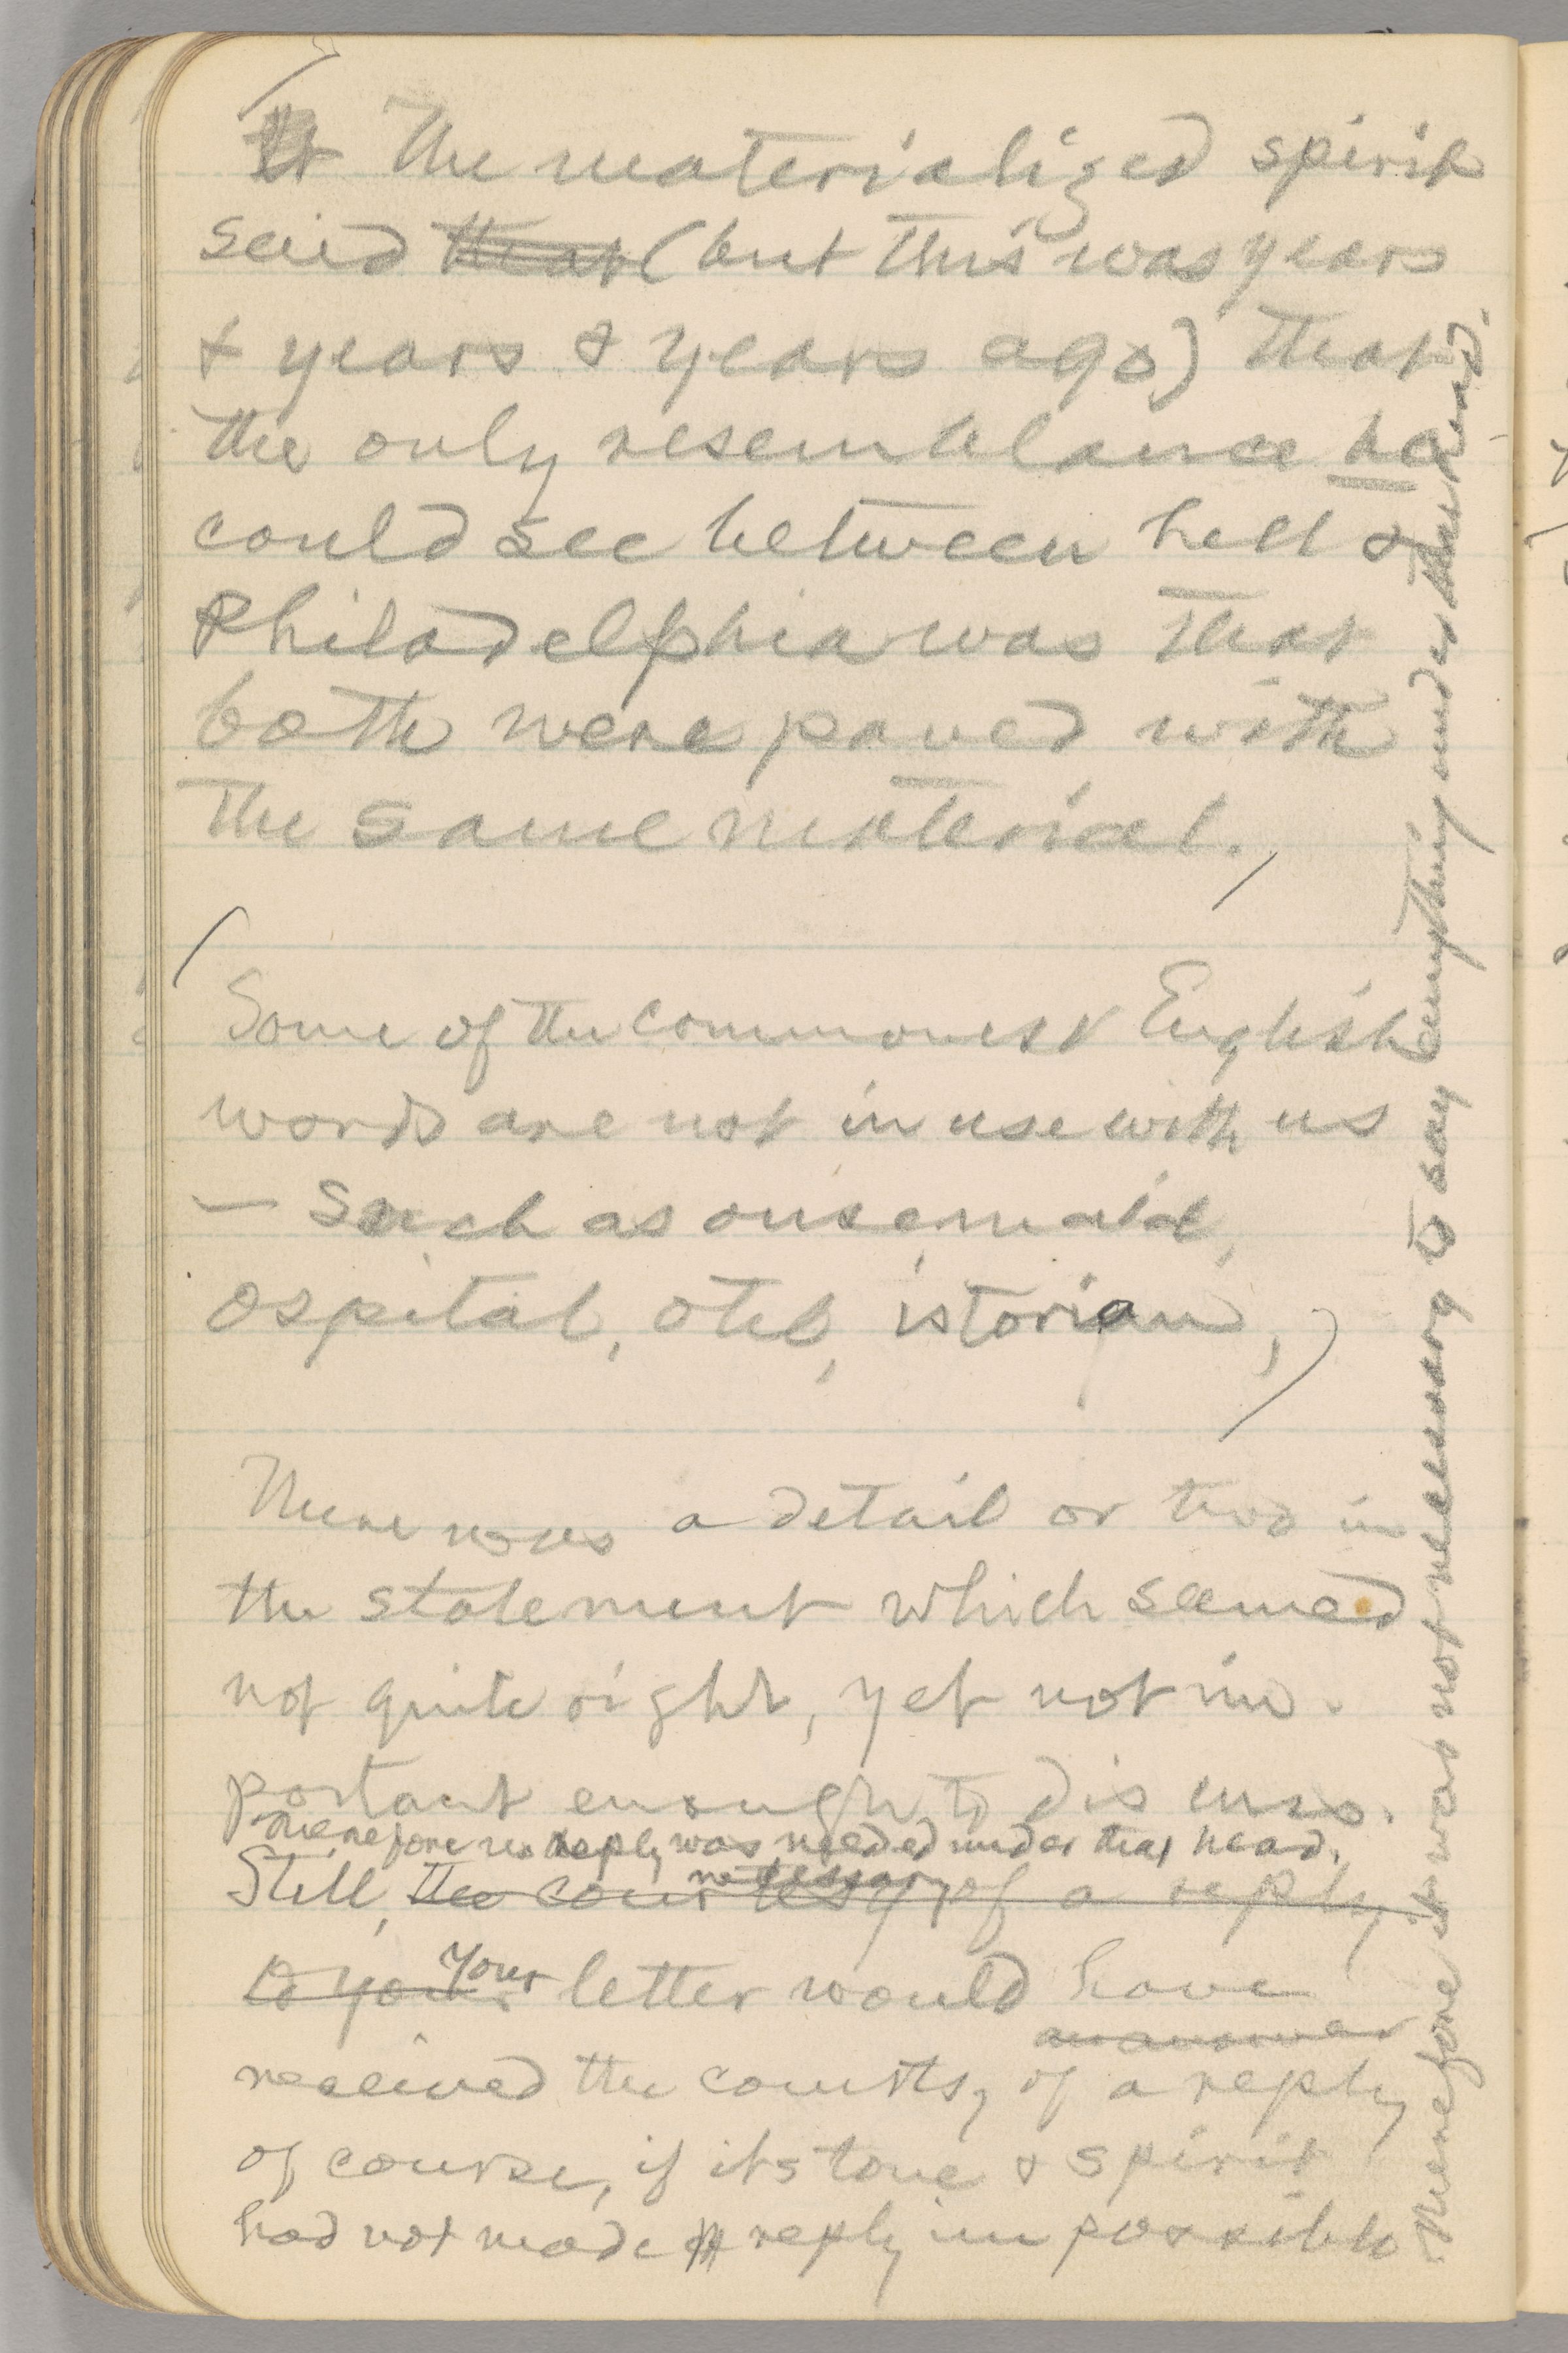 The materialized spirit
said that (but this was years
& years & years ago) that
the only resemblance he
could see between hell &
Philadelphia was that
both were paved with
the same material.
Some of the commonest English
words are not in use with us
— Such as ousemaid,
ospital, otel, istorian,
There was a detail or two in
the statement which seemed
not quite right, yet not im-
portant enough to discuss.
Therefore no reply was needed under that head.
necessary
Still, the courtesy of a reply
to your Your letter would have
an answer
received the courtesy of a reply
of course, if its tone & spirit
had not made reply impossible
Therefore it was not necessary to say anything under that head.